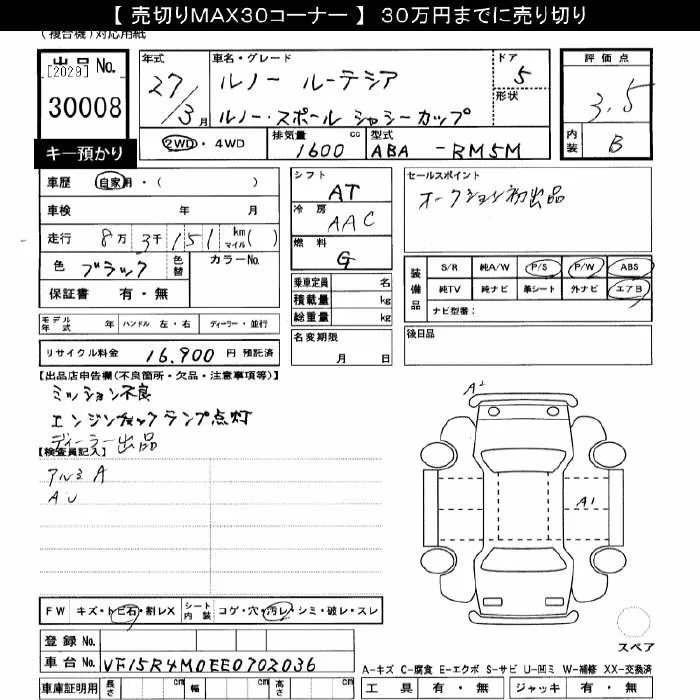 【 売切りMAX30コーナー 】 30万円までに売り切り
(複合機)対応用紙
出品 No.
[2029]
30008
キー預かり
年式
27/3月
車名・グレード
ルノー ルーテシア
ルノー・スポール シャシーカップ
ドア
5
形状
2WD・4WD
排気量 cc
1600
型式
ABA -RM5M
評価点
3.5
内装
B
車歴 自家用・( )
車検 年 月
走行 8万3千151 km マイル( )
色 ブラック 色替 カラーNo.
保証書 有・無
モデル年式 年 ハンドル 左・右 ディーラー・並行
リサイクル料金 16,900 円 預託済
シフト
AT
冷房
AAC
燃料
G
乗車定員 名
積載量 kg
総重量 kg
名変期限
月 日
セールスポイント
オークション初出品
装備品
S/R 純A/W P/S P/W ABS
純TV 純ナビ 革シート 外ナビ エアB
ナビ型番:
後日品
【出品店申告欄(不良箇所・欠品・注意事項等)】
ミッション不良
エンジンチェックランプ点灯
ディーラー出品
【検査員記入】
アルミ A
A U
A2
A1
スペア
FW キズ・トビ石・割レX シート内装 コゲ・穴・汚レ・シミ・破レ・スレ
登録 No.
車台 No. VF15R4M0EE0702036
車庫証明用 長さ cm 幅 cm 高さ cm
A-キズ C-腐食 E-エクボ S-サビ U-凹ミ W-補修 XX-交換済
工具 有・無 ジャッキ 有・無